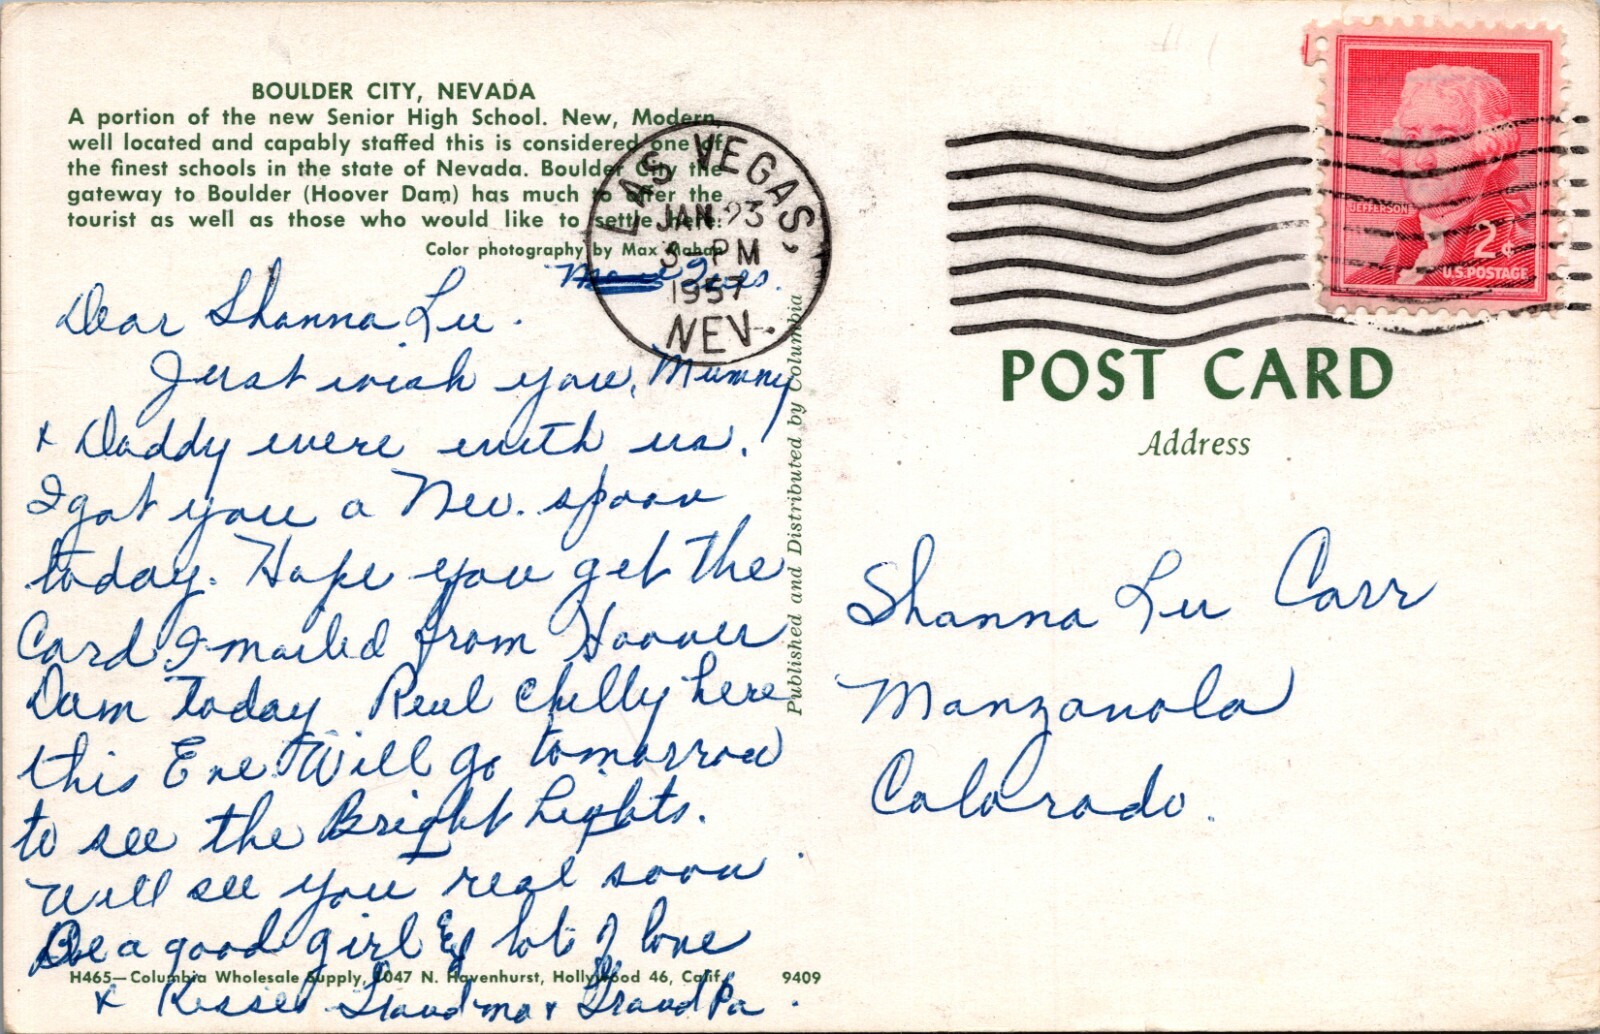 BOULDER CITY, NEVADA
A portion of the new Senior High School. New, Modern,
well located and capably staffed this is considered one of
the finest schools in the state of Nevada. Boulder City the
gateway to Boulder (Hoover Dam) has much to offer the
tourist as well as those who would like to settle here.
Color photography by Max Mahan
LAS VEGAS,
JAN 23
3-PM
1957
NEV.
Tues.
Dear Shanna Lu.
Just wish you, Mummy
+ Daddy were with us!
I got you a Nev. spoon
today. Hope you get the
Card I mailed from Hoover
Dam today. Real Chilly here
this Eve. Will go tomorrow
to see the Bright Lights.
Will see you real soon.
Be a good girl & lots of love
+ Kisses Grandma + GrandPa.
H465—Columbia Wholesale Supply, 1047 N. Havenhurst, Hollywood 46, Calif. 9409
Published and Distributed by Columbia
JEFFERSON
2¢
U.S. POSTAGE
POST CARD
Address
Shanna Lu Carr
Manzanola
Colorado.